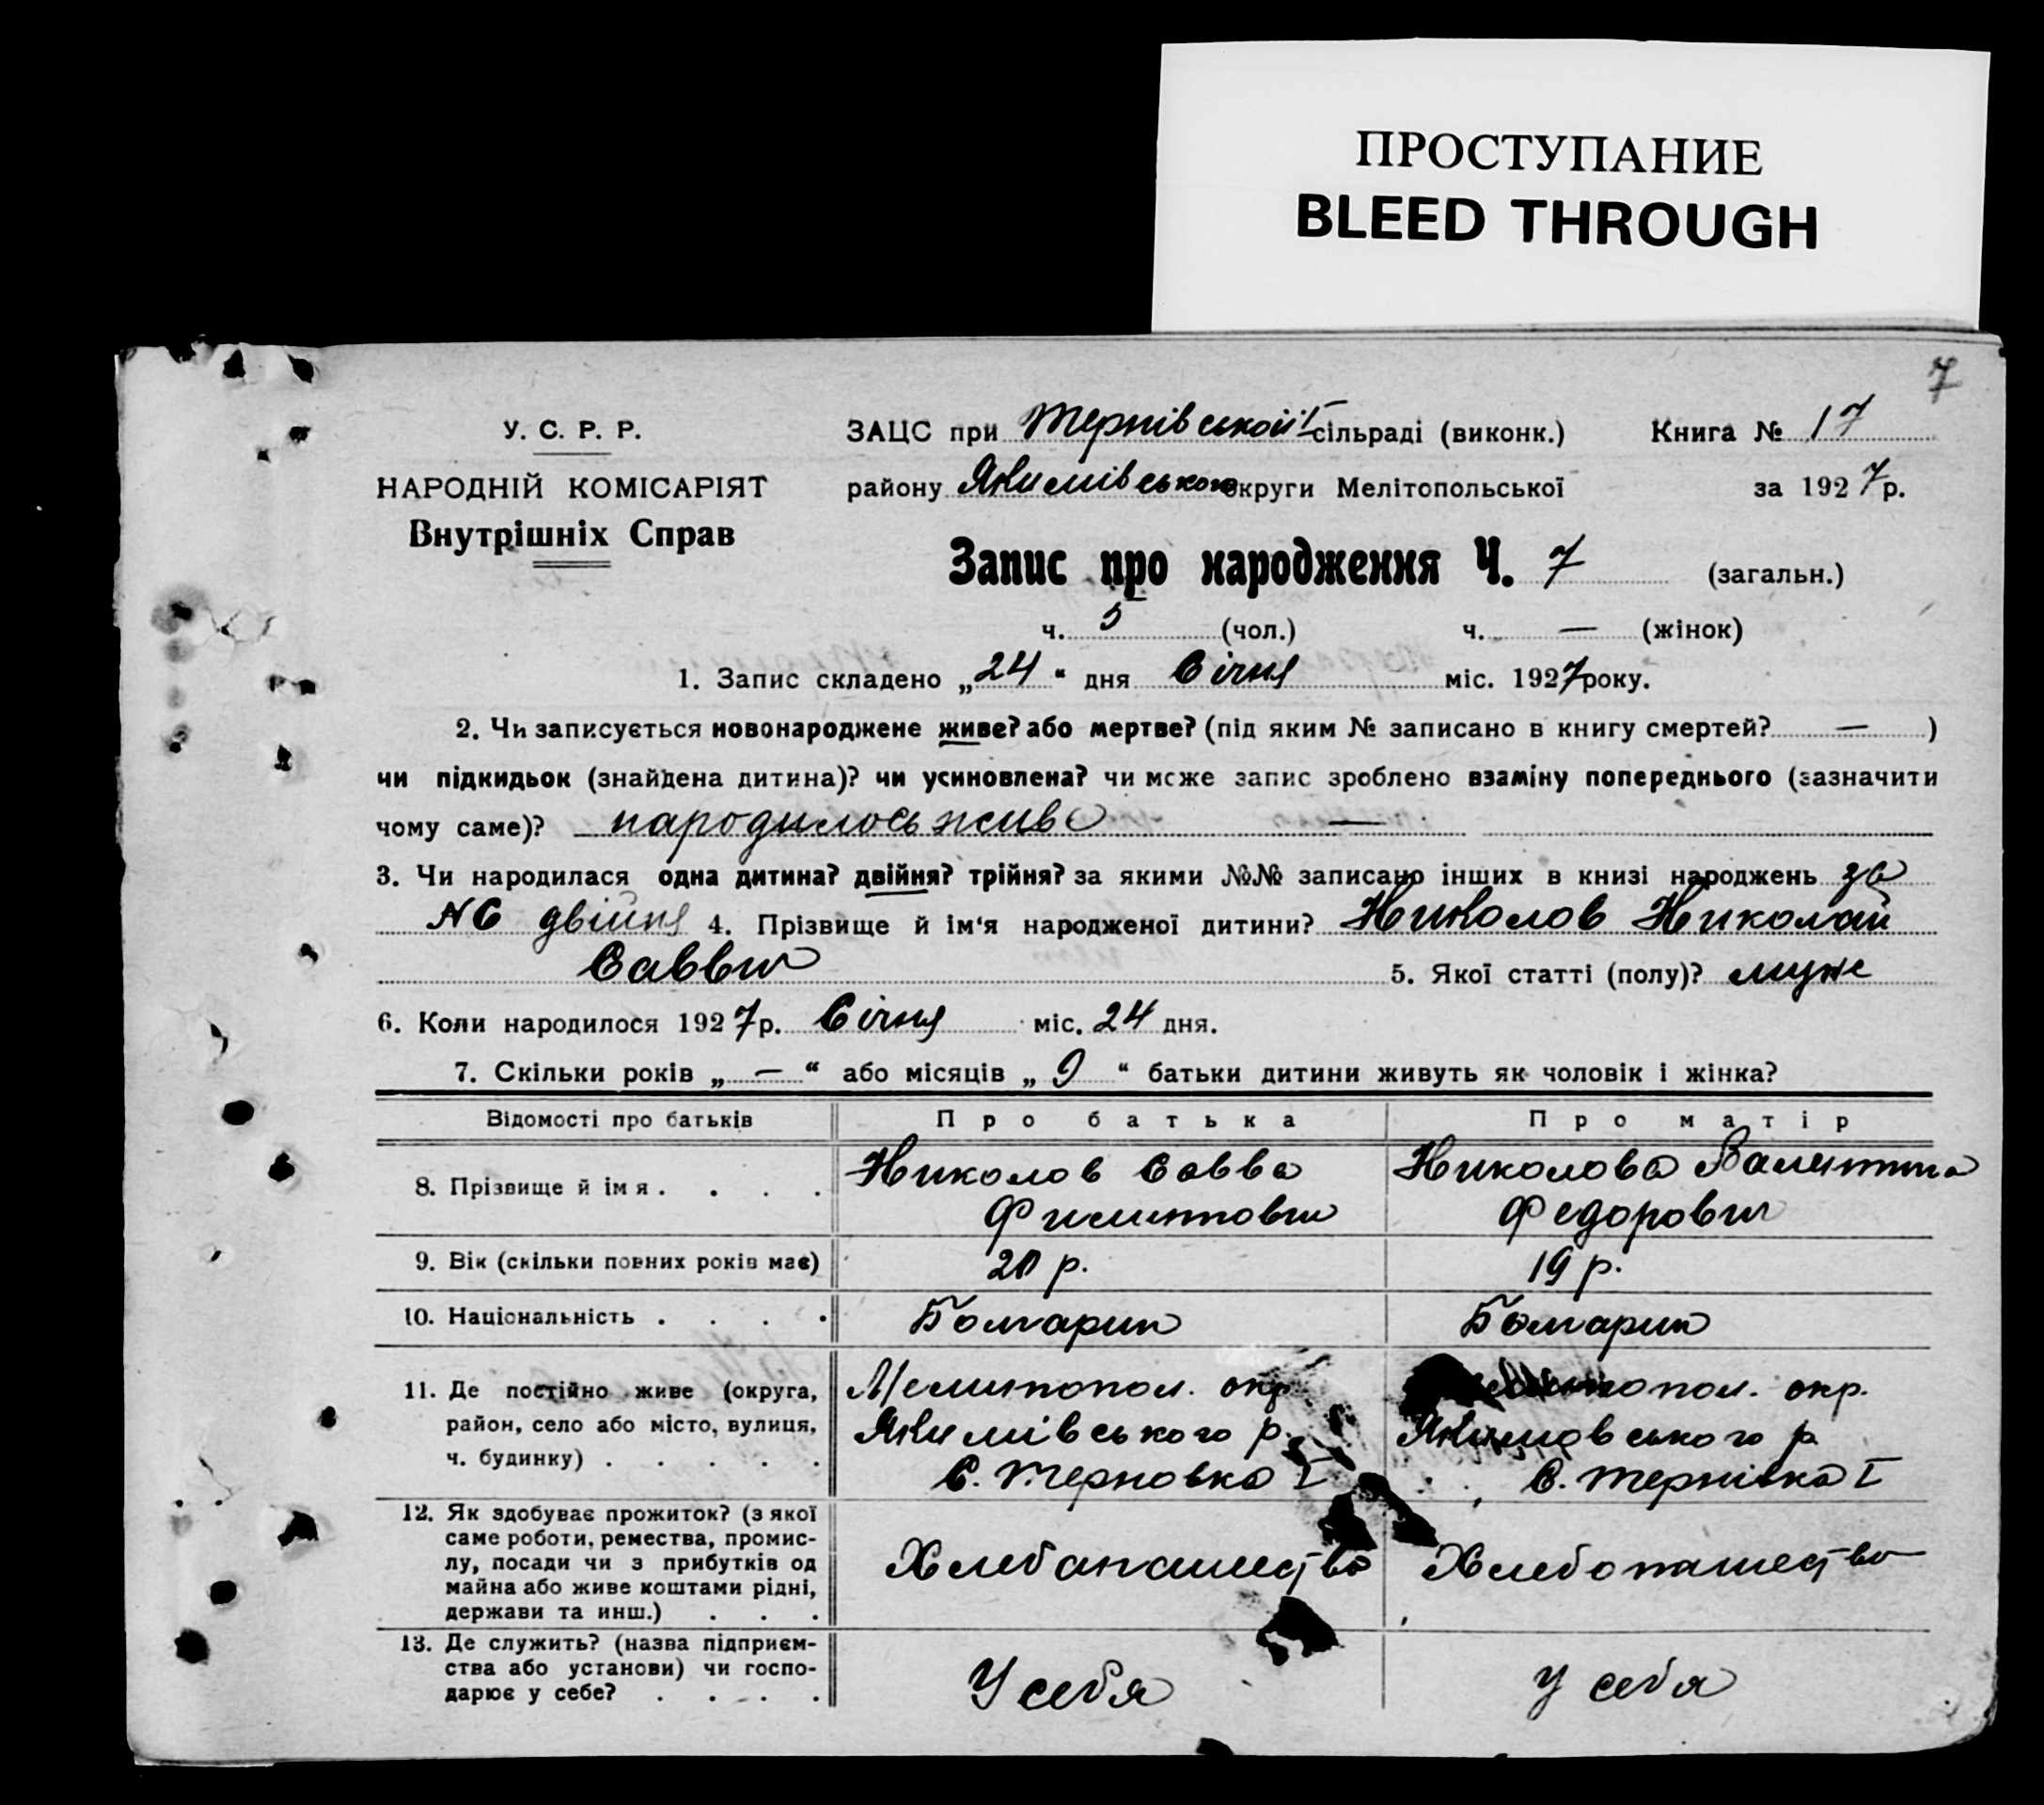 ПРОСТУПАНИЕ
BLEED THROUGH
7
У. С. Р. Р.
НАРОДНІЙ КОМІСАРІЯТ
Внутрішніх Справ
ЗАЦС при Тернівській I сільраді (виконк.) Книга № 17
району Якимівського округи Мелітопольської за 1927 р.
Запис про народження Ч. 7 (загальн.)
ч. 5 (чол.) ч. — (жінок)
1. Запис складено „24“ дня Січня міс. 1927 року.
2. Чи записується новонароджене живе? або мертве? (під яким № записано в книгу смертей? — )
чи підкидьок (знайдена дитина)? чи усиновлена? чи може запис зроблено взаміну попереднього (зазначити
чому саме)? народилось живе —
3. Чи народилася одна дитина? двійня? трійня? за якими №№ записано інших в книзі народжень за
№6 двійня 4. Прізвище й ім‘я народженої дитини? Николов Николай
Саввич 5. Якої статті (полу)? муж
6. Коли народилося 1927 р. Січня міс. 24 дня.
7. Скільки років „—“ або місяців „9“ батьки дитини живуть як чоловік і жінка?
Відомості про батьків Про батька Про матір
8. Прізвище й ім я . . . . Николов Савва Николова Валентина
Филиппович Федоровна
9. Вік (скільки повних років має) 20 р. 19 р.
10. Національність . . . . Болгарин Болгарин
11. Де постійно живе (округа, Мелитопол. окр. Мелитопол. окр.
район, село або місто, вулиця, Якимівського р. Якимовського р.
ч. будинку) . . . . . С. Терновка I С. Тернівка I
12. Як здобуває прожиток? (з якої
саме роботи, ремества, промис-
лу, посади чи з прибутків од Хлебопашество Хлебопашество
майна або живе коштами рідні,
держави та инш.) . . .
13. Де служить? (назва підприєм-
ства або установи) чи госпо- У себя У себя
дарює у себе? . . . .